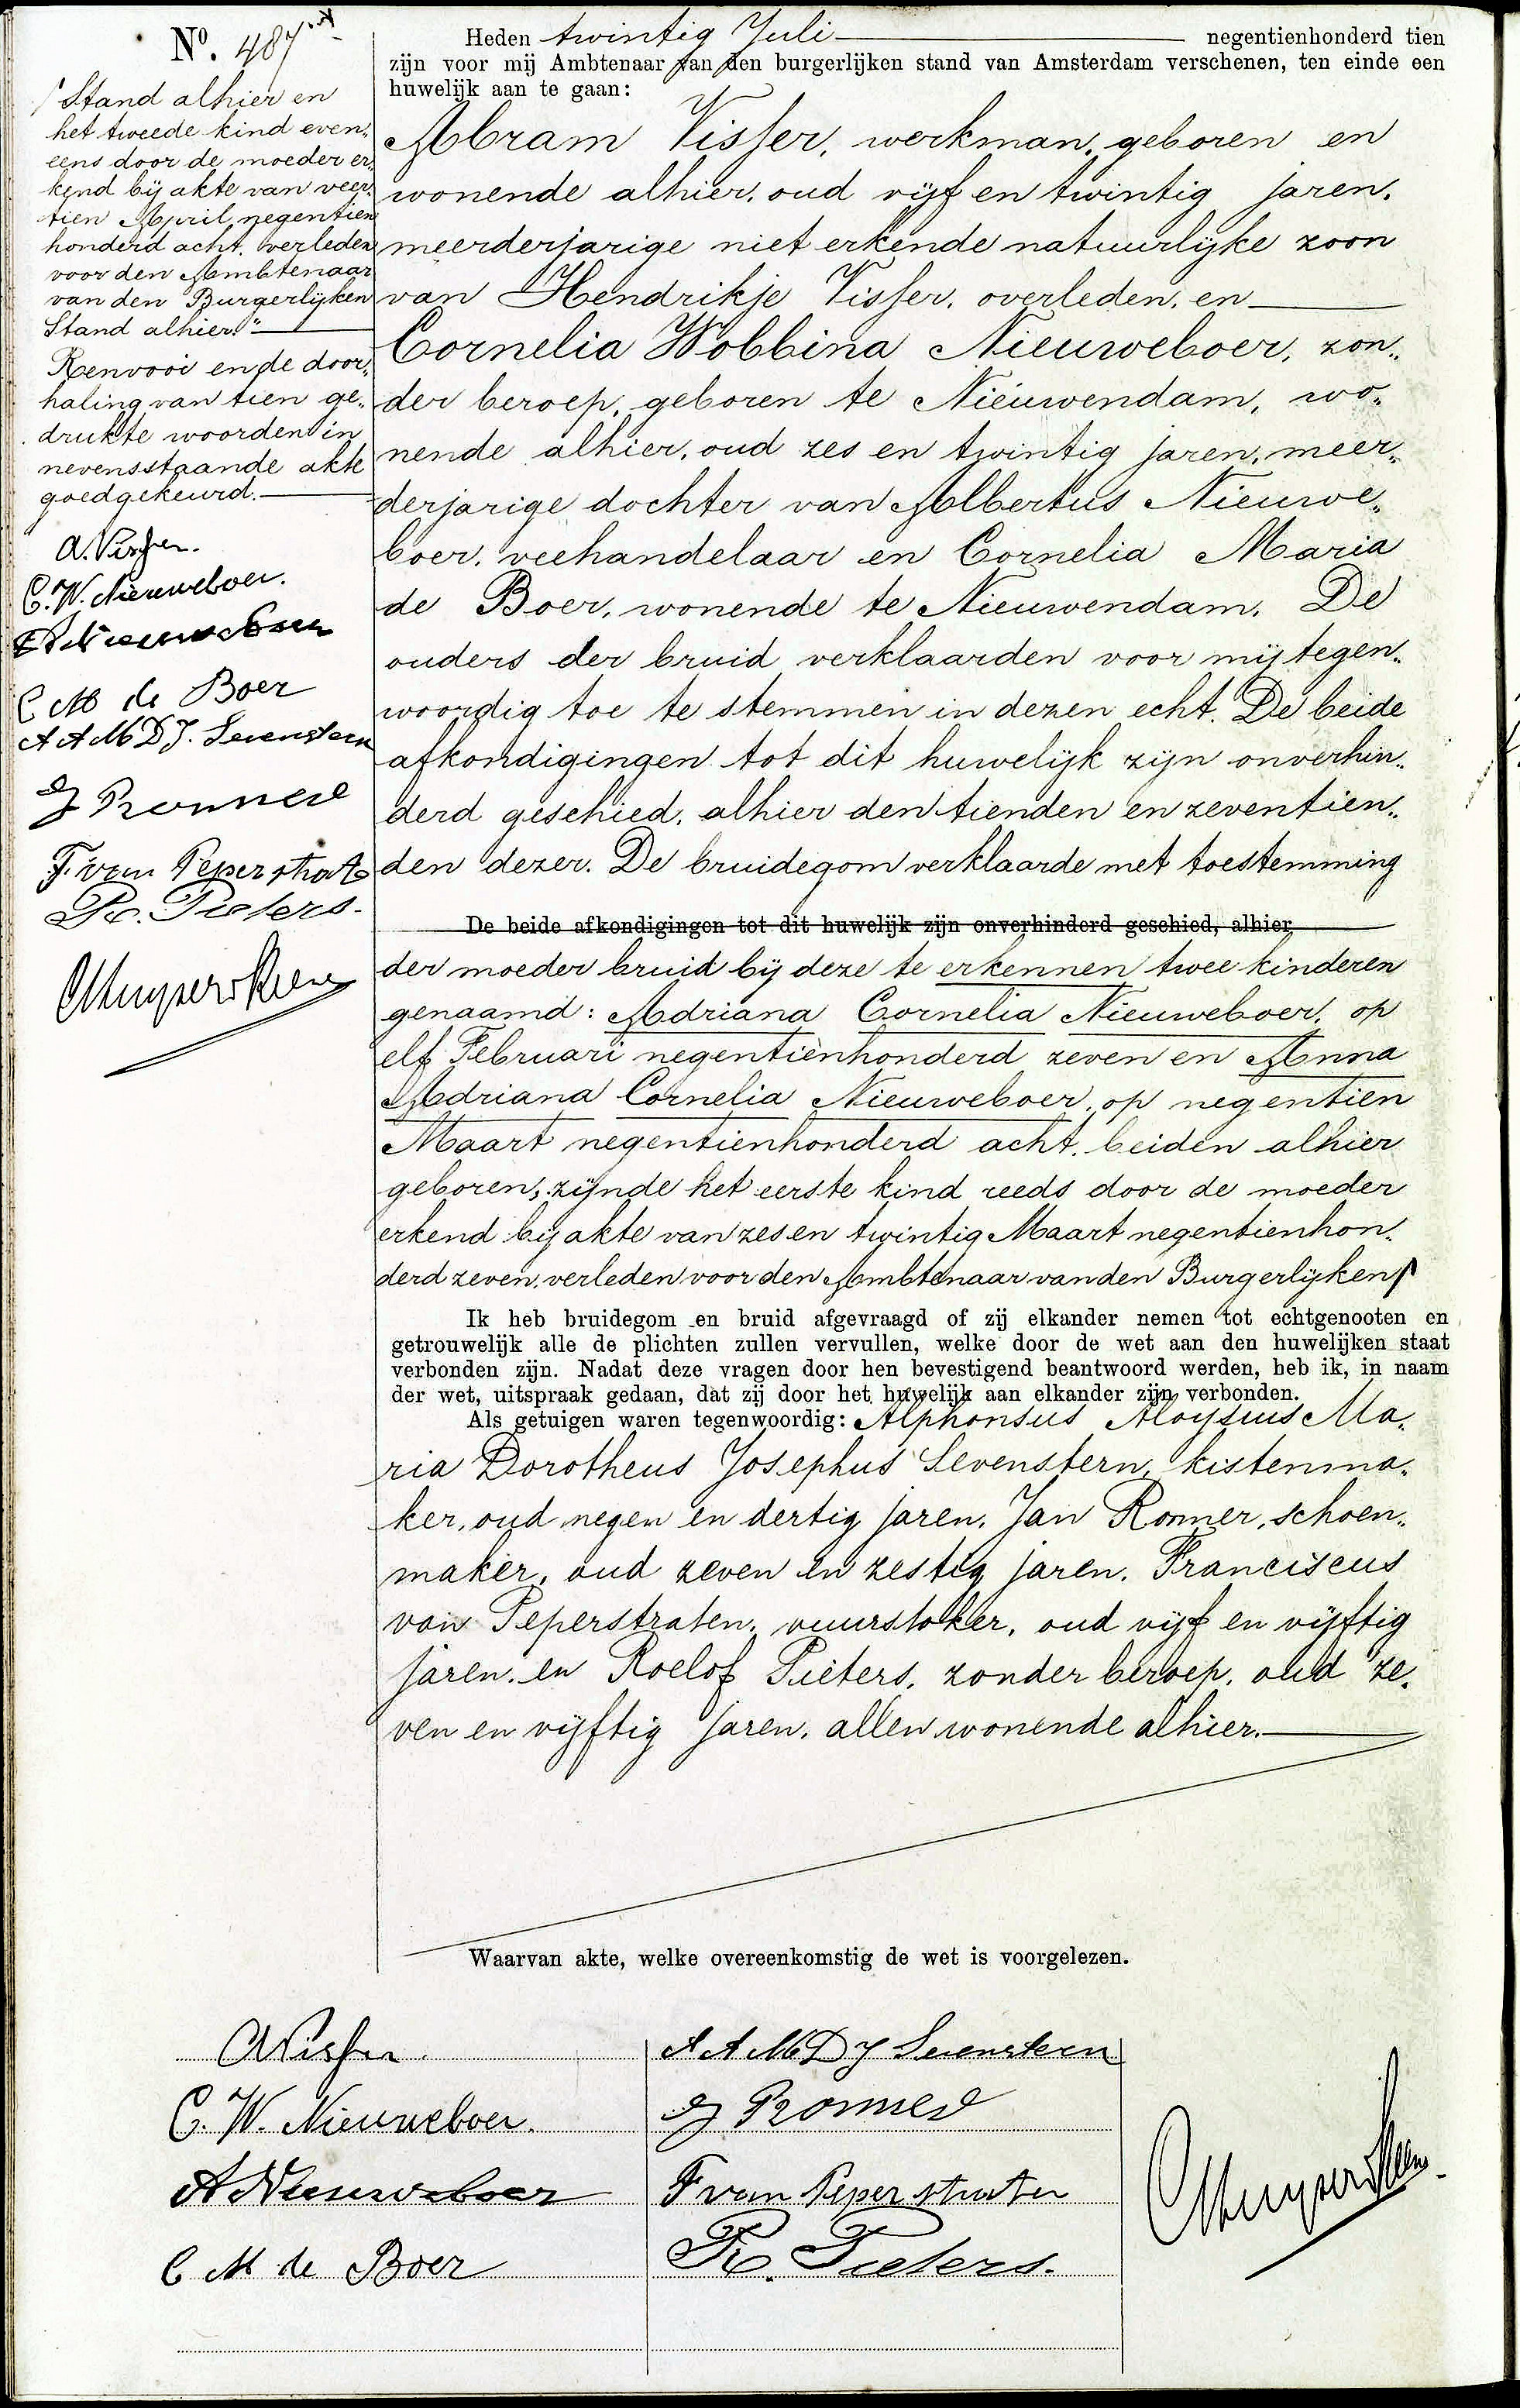 No. 487
/ Stand alhier en
het tweede kind even„
eens door de moeder er„
kend bij akte van veer„
tien April negentien
honderd acht, verleden
voor den Ambtenaar
van den Burgerlijken
Stand alhier."
Renvooi en de door„
haling van tien ge„
drukte woorden in
nevensstaande akte
goedgekeurd.
A. Visser.
C. W. Nieuweboer.
A Nieuweboer
C M de Boer
A A M D J. Sevenstern
J Ronner
F. van Peperstraten
R. Pieters.
Heden twintig Juli negentienhonderd tien
zijn voor mij Ambtenaar van den burgerlijken stand van Amsterdam verschenen, ten einde een
huwelijk aan te gaan:
Abram Visser, werkman, geboren en
wonende alhier, oud vijf en twintig jaren,
meerderjarige niet erkende natuurlijke zoon
van Hendrikje Visser, overleden, en
Cornelia Wobbina Nieuweboer, zon„
der beroep, geboren te Nieuwendam, wo„
nende alhier, oud zes en twintig jaren, meer„
derjarige dochter van Albertus Nieuwe„
boer, veehandelaar en Cornelia Maria
de Boer, wonende te Nieuwendam. De
ouders der bruid verklaarden voor mij tegen„
woordig toe te stemmen in dezen echt. De beide
afkondigingen tot dit huwelijk zijn onverhin„
derd geschied, alhier den tienden en zeventien„
den dezer. De bruidegom verklaarde met toestemming
De beide afkondigingen tot dit huwelijk zijn onverhinderd geschied, alhier
der moeder bruid bij deze te erkennen twee kinderen
genaamd: Adriana Cornelia Nieuweboer, op
elf Februari negentienhonderd zeven en Anna
Adriana Cornelia Nieuweboer, op negentien
Maart negentienhonderd acht, beiden alhier
geboren, zijnde het eerste kind reeds door de moeder
erkend bij akte van zes en twintig Maart negentienhon„
derd zeven, verleden voor den Ambtenaar van den Burgerlijken /
Ik heb bruidegom en bruid afgevraagd of zij elkander nemen tot echtgenooten en
getrouwelijk alle de plichten zullen vervullen, welke door de wet aan den huwelijken staat
verbonden zijn. Nadat deze vragen door hen bevestigend beantwoord werden, heb ik, in naam
der wet, uitspraak gedaan, dat zij door het huwelijk aan elkander zijn verbonden.
Als getuigen waren tegenwoordig: Alphonsus Aloysius Ma„
ria Dorotheus Josephus Sevenstern, kistenma„
ker, oud negen en dertig jaren, Jan Ronner, schoen„
maker, oud zeven en zestig jaren, Franciscus
van Peperstraten, vuurstoker, oud vijf en vijftig
jaren, en Roelof Pieters, zonder beroep, oud ze„
ven en vijftig jaren, allen wonende alhier.
Waarvan akte, welke overeenkomstig de wet is voorgelezen.
A Visser.
C. W. Nieuweboer.
A Nieuweboer
C M de Boer
A A M D J Sevenstern
J Ronner
F van Peperstraten
R. Pieters.